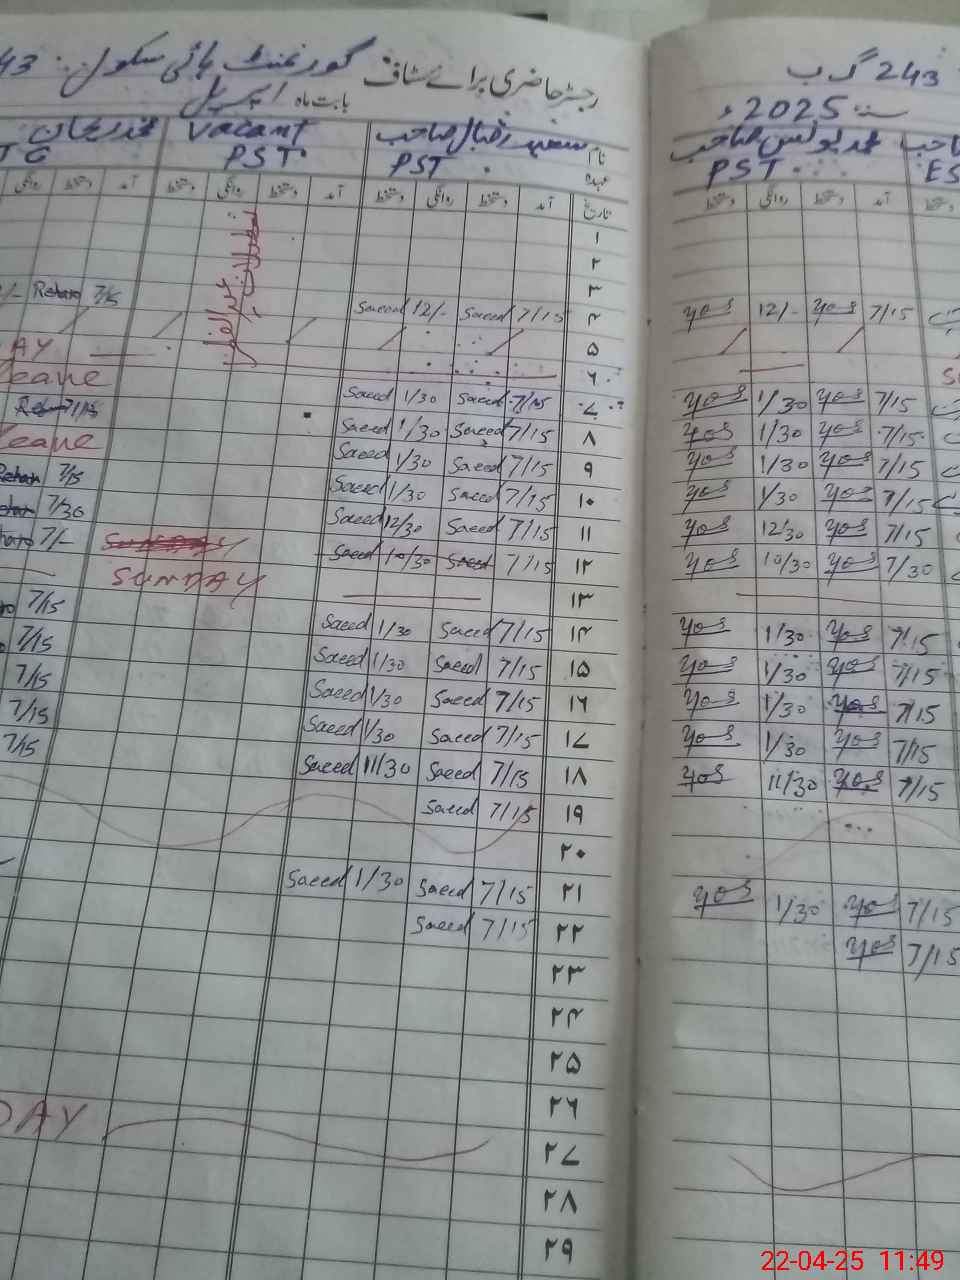 رجسٹر حاضری برائے سٹاف گورنمنٹ ہائی سکول 243 گ ب
بابت ماہ اپریل سنہ 2025ء
نام سعید اقبال صاحب Vacant
عہدہ PST PST TG
محمد یونس صاحب
PST ES
تاریخ آمد دستخط روانگی دستخط آمد دستخط روانگی دستخط آمد دستخط روانگی
آمد دستخط روانگی دستخط
۱
۲
۳
۴ 7/15 Saeed 12/- Saeed 7/15 yos 12/- yos 7/15
۵
۶ DAY
۷ 7/15 Saeed 1/30 Saeed Leave 7/15 yos 1/30 yos
۸ 7/15 Saeed 1/30 Saeed 7/15 7/15 yos 1/30 yos
۹ 7/15 Saeed 1/30 Saeed Leave 7/15 yos 1/30 yos
۱۰ 7/15 Saeed 1/30 Saeed 7/15 7/15 yos 1/30 yos
۱۱ 7/15 Saeed 12/30 Saeed 7/30 7/15 yos 12/30 yos
۱۲ 7/15 Saeed 10/30 Saeed 7/- 7/30 yos 10/30 yos
۱۳ SUNDAY
۱۴ 7/15 Saeed 1/30 Saeed 7/15 7/15 yos 1/30 yos
۱۵ 7/15 Saeed 1/30 Saeed 7/15 7/15 yos 1/30 yos
۱۶ 7/15 Saeed 1/30 Saeed 7/15 7/15 yos 1/30 yos
۱۷ 7/15 Saeed 1/30 Saeed 7/15 7/15 yos 1/30 yos
۱۸ 7/15 Saeed 11/30 Saeed 7/15 7/15 yos 11/30 yos
۱۹ 7/15 Saeed
۲۰
۲۱ 7/15 Saeed 1/30 Saeed 7/15 yos 1/30 yos
۲۲ 7/15 Saeed 7/15 yos
۲۳
۲۴
۲۵
۲۶
۲۷ DAY
۲۸
۲۹
22-04-25 11:49